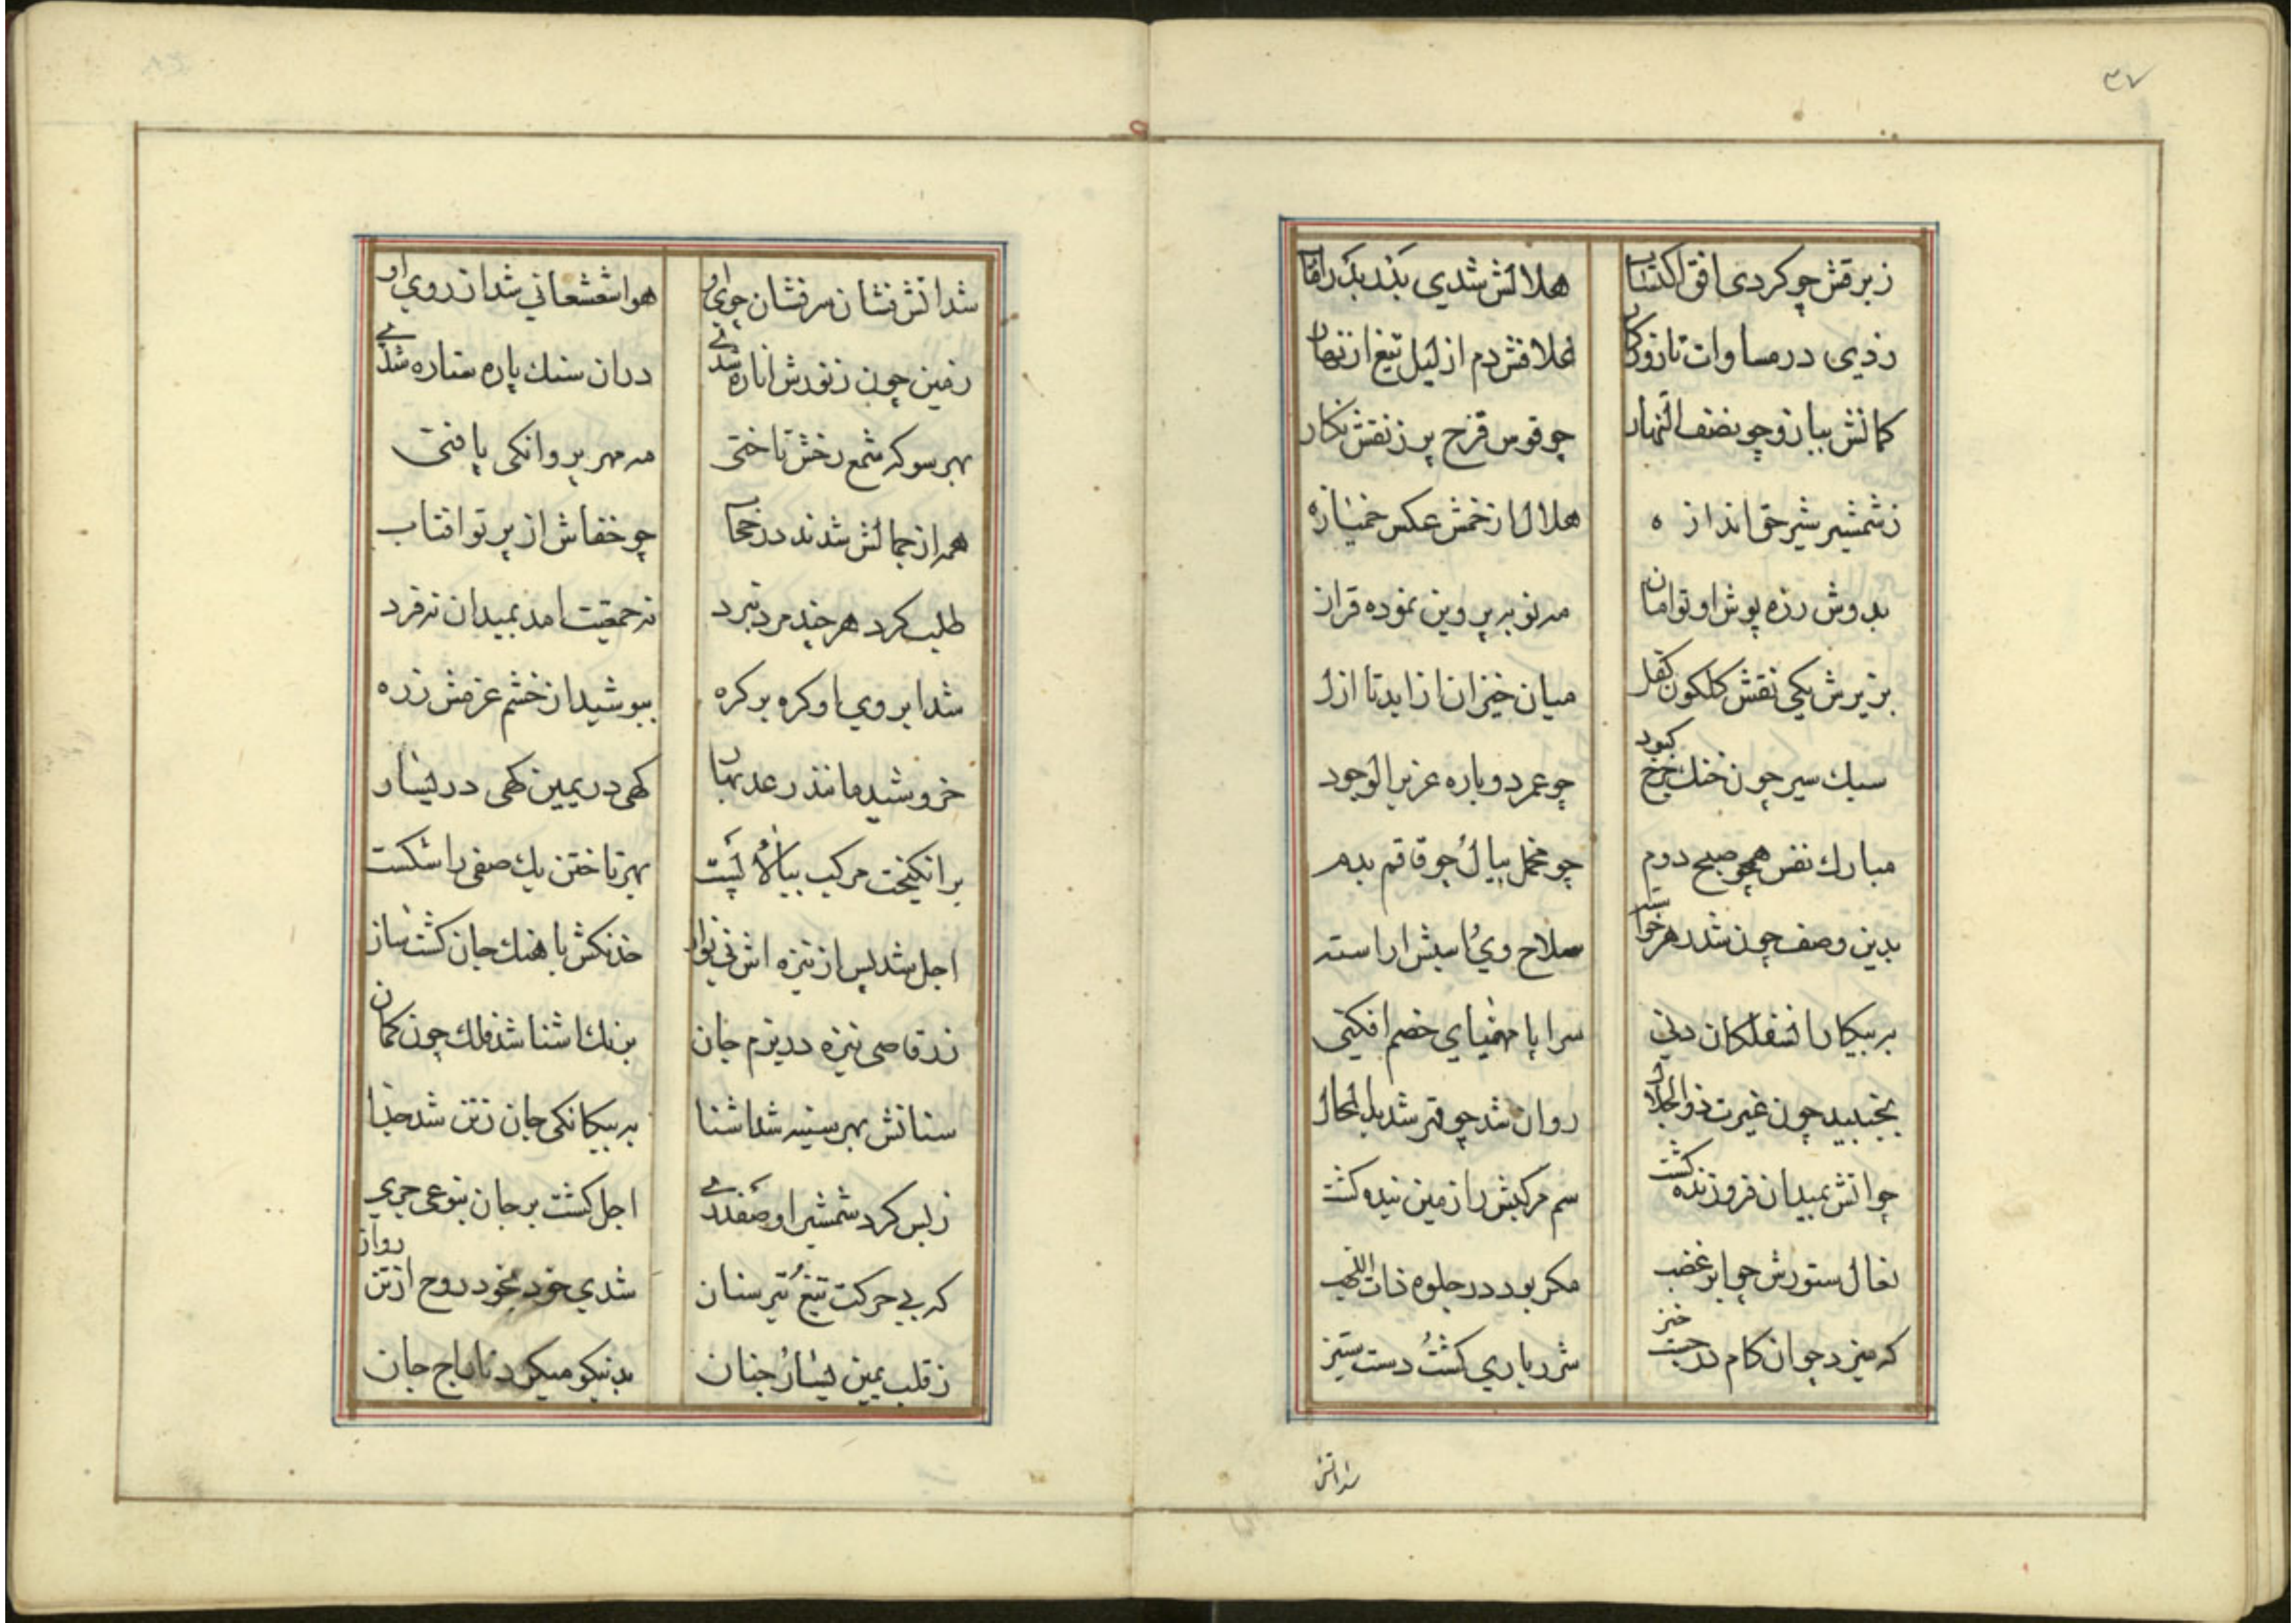 ۳۷
زبرقش چو کردی افق اکتساب هلالش شدی بند یک رافتاب
زدی در مساوات تا زو کمان غلافش دم از لیل تیغ از نهار
کمانش ببازو چو نصف النهار چو قوس قزح پر ز نقش نکار
ز شمشیر شیر حق اندازه هلال از خمش عکس خمیازه
بدوش زره پوش او توامان مه نو به پروین نموده قران
بزیرش یکی نقش کلکون کفل میان خیزان از ابد تا ازل
سبك سیر چون خنك چرخ کبود چو عمر دوباره عزیز الوجود
مبارك نفس همچو صبح دوم چو مخمل بیال و چو قاقم بدم
بدین وصف چون شد هر خواسته سلاح وی و اسبش اراسته
به پیکار ان سفلکان دنی سراپا مهیای خصم افکنی
بجنبید چون غیرت ذوالجلال روان شد چو قهر شدید المحال
چو اتش بمیدان فروزنده کشت سم مرکبش را زمین بنده کشت
نعال ستورش چو ابر غضب مکر بود در جلوه ذات اللهب
که میزد چو ان کام در جست خیز شرر باری کشت و دست ستیز
شد اتش
شد اتش فشان سرفشان چوی او هوا شعشعانی شد از روی او
زمین چون ز نورش اناره شدی دران سنك پاره ستاره شدی
بهر سو که شمع رخش تاختی مه مهر پروانکی یافتی
همه از جمالش شدند در حجاب چو خفاش از پرتو افتاب
طلب کرد هر چند مرد نبرد نه جمعیت امد بمیدان نه فرد
شد ابروی او کره بر کره بپوشید از خشم عزمش زره
خروشید مانند رعد بهار کهی در یمین کهی در یسار
برانکیخت مرکب ببالا و پست بهر تاختن یك صفی را شکست
اجل شد پس از نیزه اش نی نواز خدنکش باهنك جان کشت ساز
ز رقاصی نیزه در بزم جان بزنك اشنا شد فلك چون کمان
سنانش بهر سینه شد اشنا به بیکانکی جان ز تن شد جدا
ز بس کرد شمشیر او صفدری اجل کشت بر جان بنوعی جری
که بی حرکت تیغ و تیر سنان شدی خود بخود روح از تن روان
ز قلب یمین و یسار و جنان بد نیکو میکرد تاراج جان